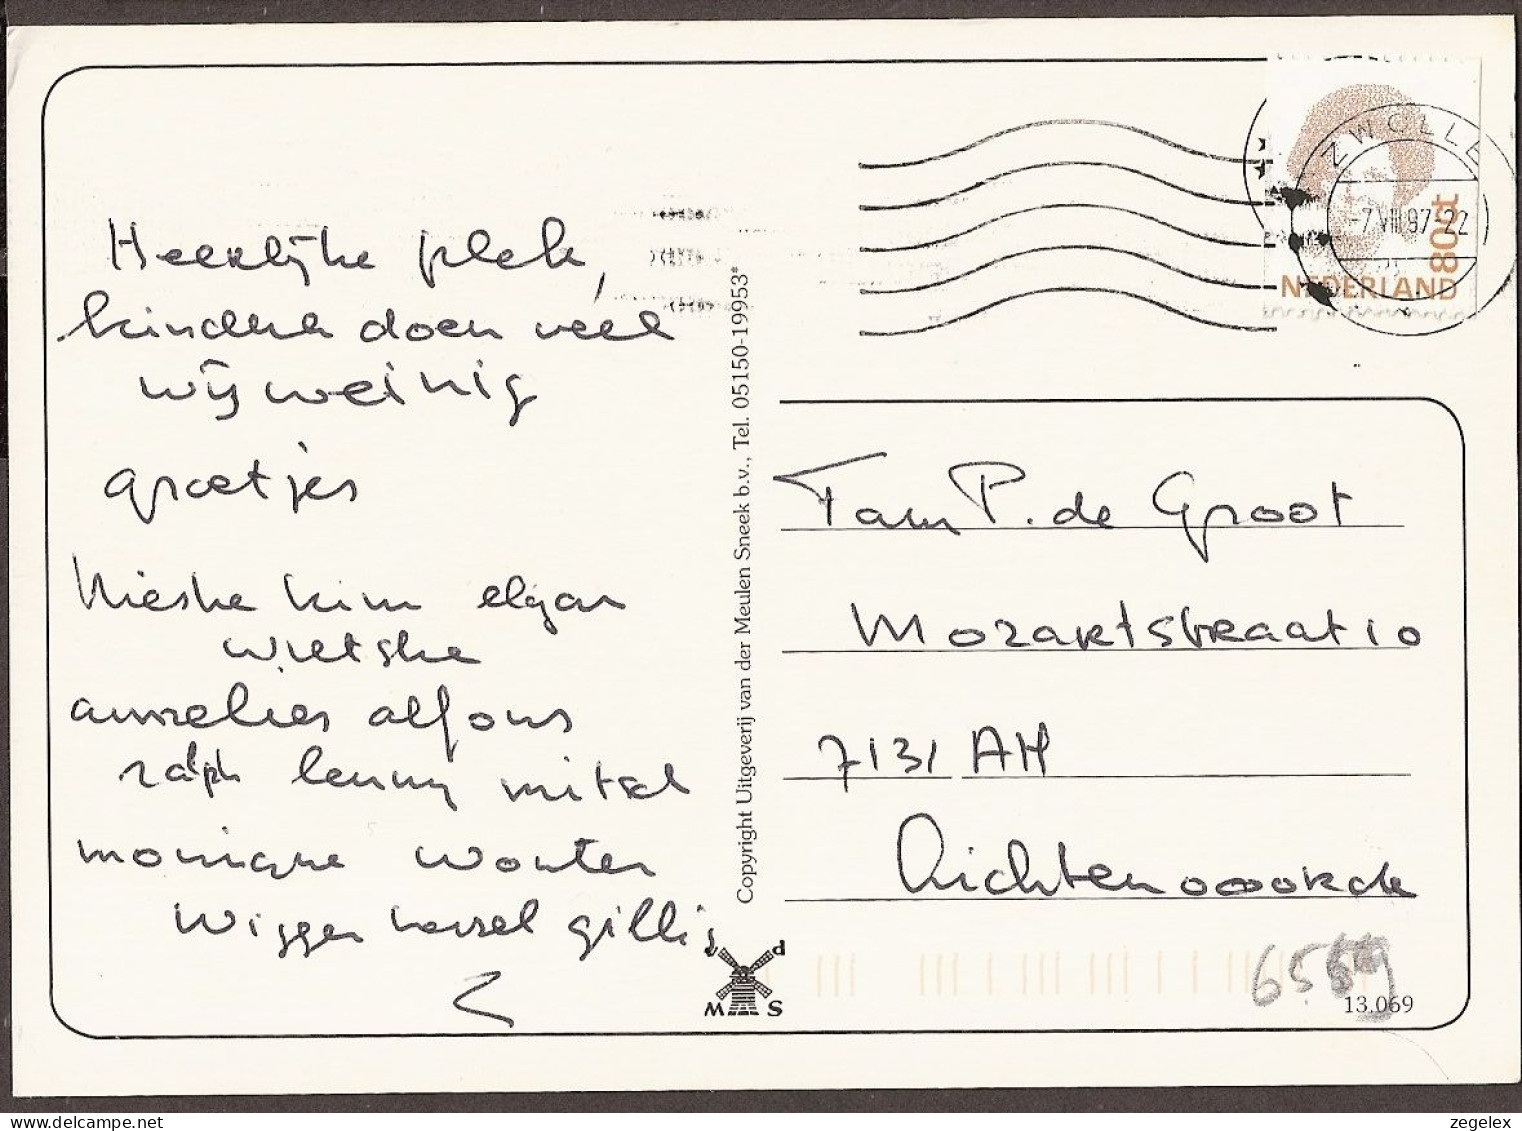 ZWOLLE
-7.VIII.97-22
80ct
NEDERLAND
Heerlijke plek,
kinderen doen veel
wij weinig
groetjes
Nieske kim elgar
wietske
aurelies alfons
ralph lenny mitsel
monique wouter
wigger hessel gillis
Copyright Uitgeverij van der Meulen Sneek b.v., Tel. 05150-19953*
Fam P. de Groot
Mozartstraat 10
7131 AH
Lichtenvoorde
P
M S
65
13.069
zegelex